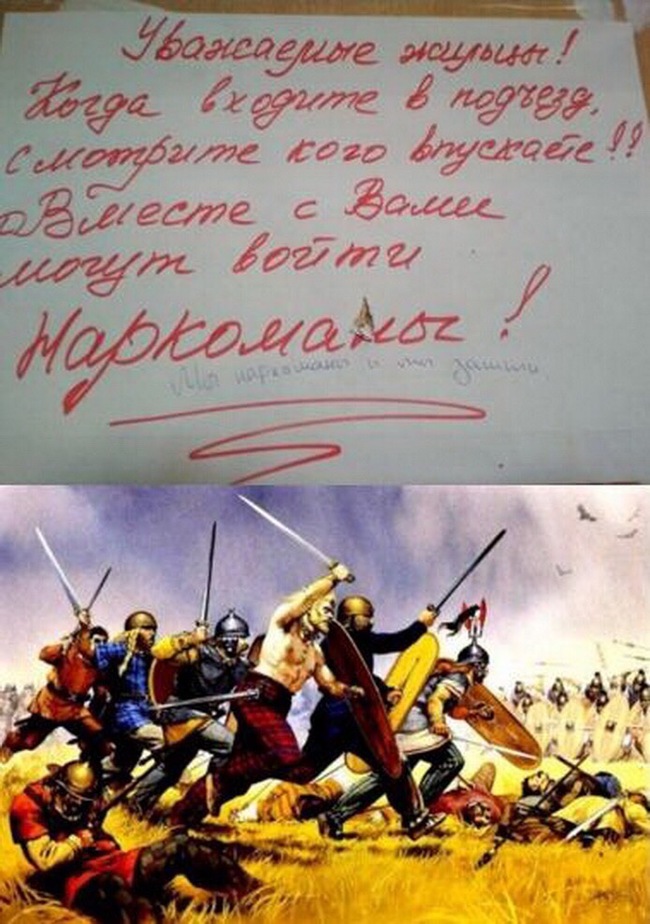 Уважаемые жильцы!
Когда входите в подъезд,
смотрите кого впускаете!!
Вместе с Вами
могут войти
Наркоманы!
Мы наркоманы и мы зашли.